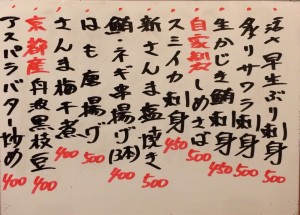 早生ぶり刺
炙りサワラ刺身 500
生かじき鮪刺身 450
自家製しめさば 500
スミイカ刺身 450
新さんま塩焼き 500
鮪・ネギ串揚げ(3本) 400
はも唐揚げ 500
さんま梅干煮 400
京都産丹波黒枝豆 400
アスパラバター炒め 400